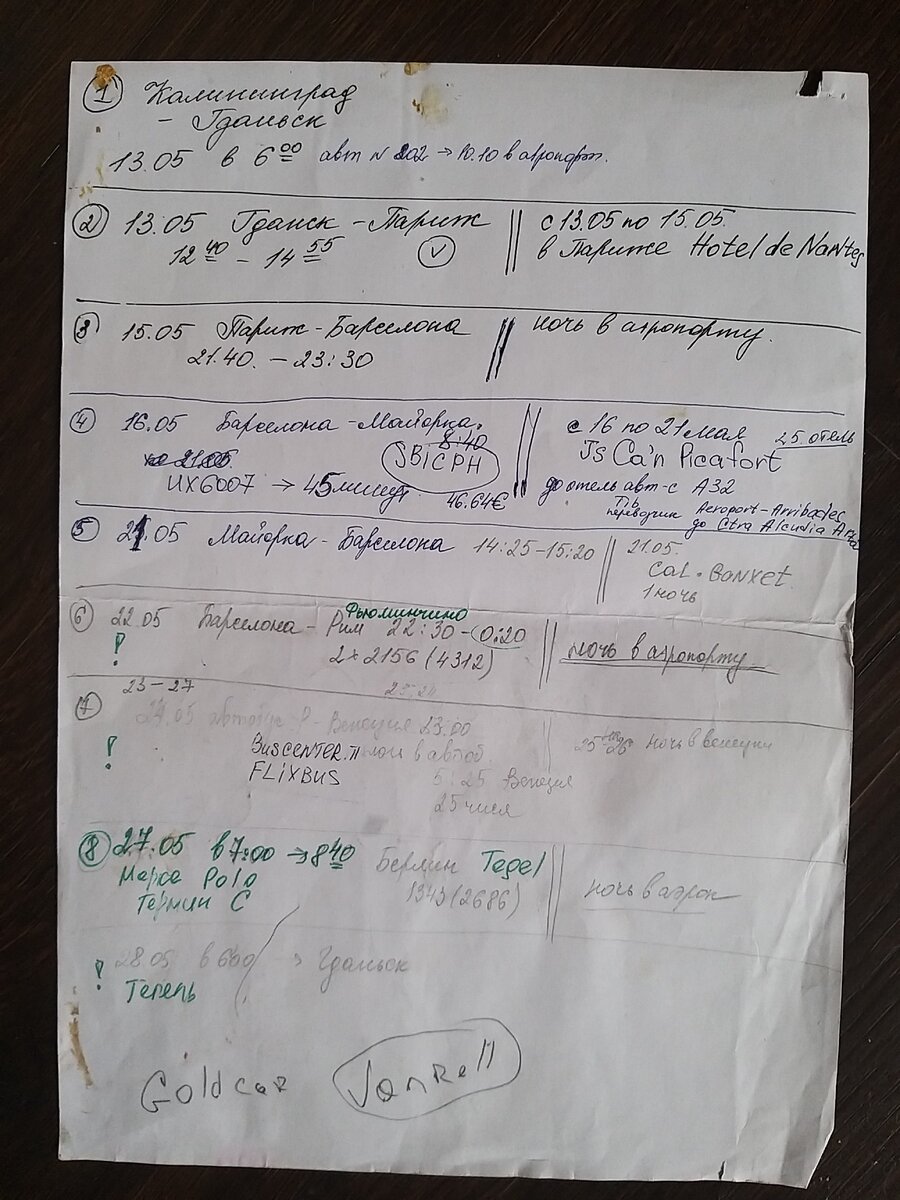 1 Калининград
- Гданьск
13.05 в 6 00 авт N 202 → 10.10 в аэропорт.
2 13.05 Гданск - Париж
12 40 - 14 55 V
с 13.05 по 15.05.
в Париже Hotel de Nantes
3 15.05 Париж - Барселона
21.40. - 23:30
ночь в аэропорту.
4 16.05 Барселона - Майорка.
8:40
SBICPH
UX6007 → 45 минут.
46.64€
с 16 по 21 мая 25. отель
Js Ca'n Picafort
до отель авт-с A32
Tib Aeroport - Arribades
переводчик до Ctra Alcudia Arta
5 21.05 Майорка - Барселона 14:25-15:20
21.05.
Cal. Banxet
1 ночь
6 22.05 Барселона - Рим 22:30 - 0:20
Фьюминчино
! 2x2156 (4312)
ночь в аэропорту
23-27
7 24.05 автобус Р - Венеция 23.00
! BUSCENTER.IT ночь в автоб
FLiXBUS
5:25 Венеция
25 числа
25 на 26 ночь в венеции
8 27.05 в 7:00 → 8 40 Берлин Tegel
Марко Polo
Термин C
1343 (2686)
ночь в аэроп
28.05 в 600 → Гданьск
! Тегель
Goldcar Vanrell